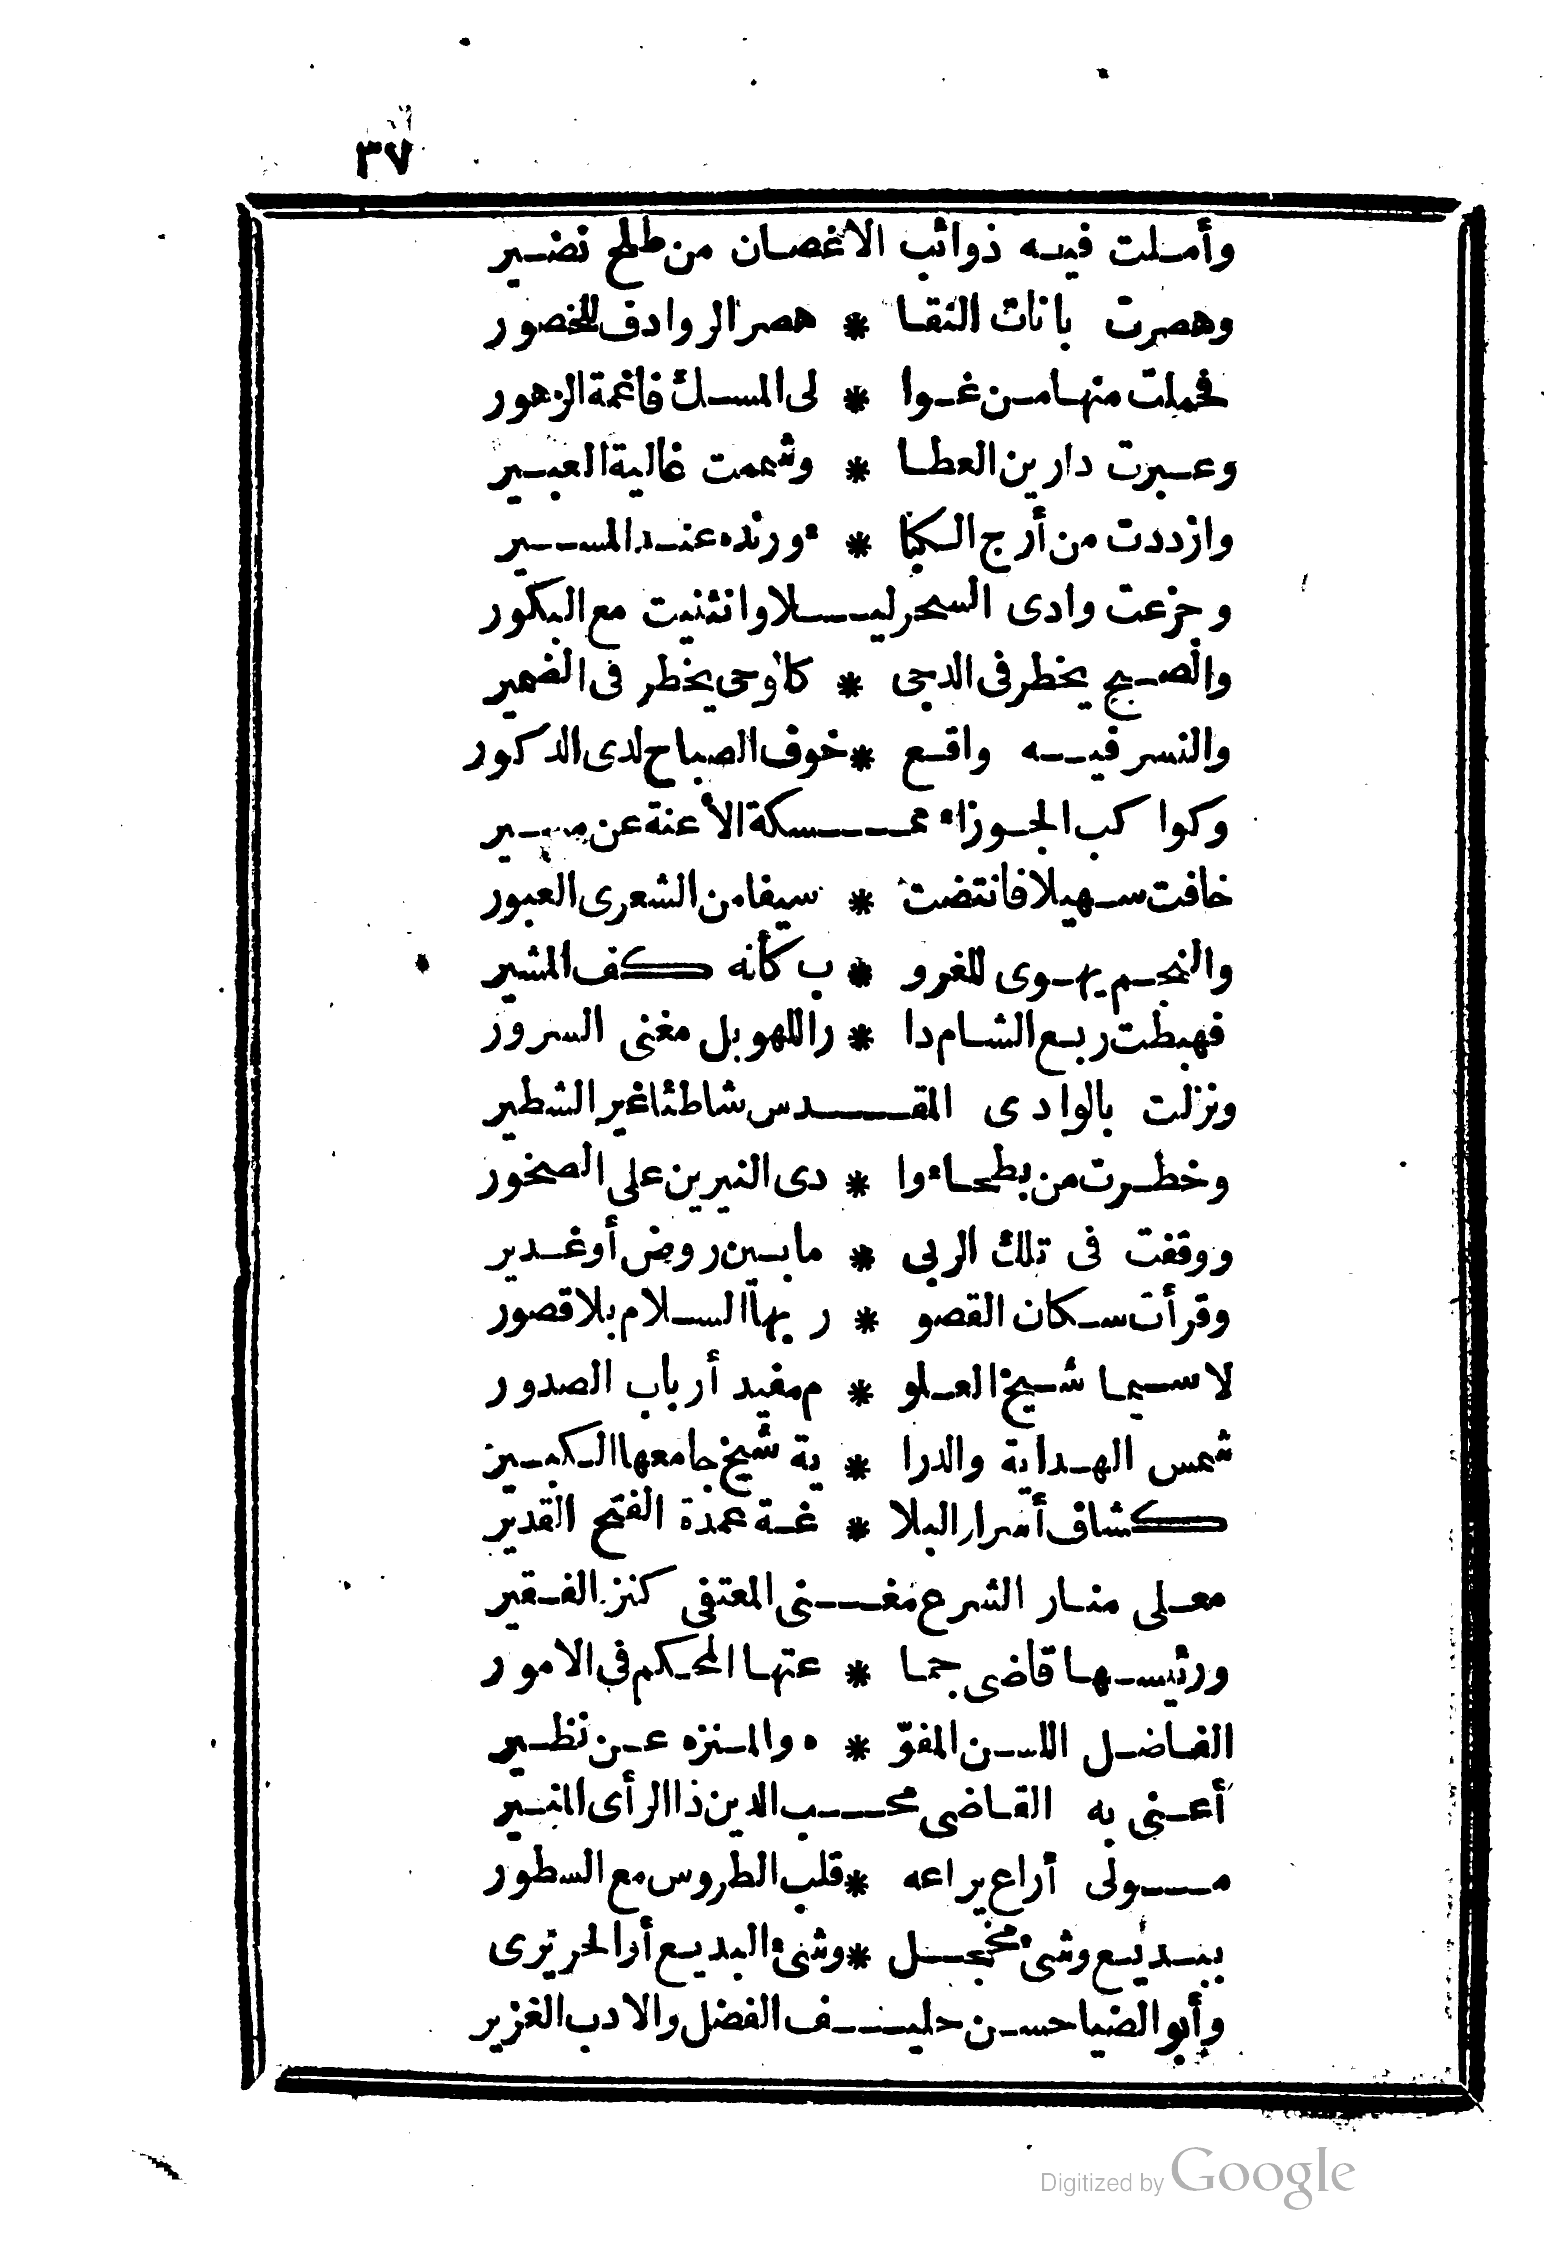 ٣٧
وأملت فيه ذوائب الاغصان من طلح نضير
وهصرت بانات النقا * هصر الروادف للخصور
فحملت منها من غوا * لى المسك فاغمة الزهور
وعبرت دارين العطا * وشممت غالية العبير
وازددت من أرج الكبا * ء ورنده عند المسير
وجزعت وادى السحر ليلا وانثنيت مع البكور
والصبح يخطر فى الدجى * كالوحى يخطر فى الضمير
والنسر فيه واقع * خوف الصباح لدى الدكور
وكواكب الجوزاء ممسكة الأعنة عن مسير
خافت سهيلا فانتضت * سيفا من الشعرى العبور
والنجم يهوى للغرو * ب كأنه كف المشير
فهبطت ربع الشام دا * را للهو بل مغنى السرور
ونزلت بالوادى المقدس شاطئا غير الشطير
وخطرت من بطحاء وا * دى النيرين على الصخور
ووقفت فى تلك الربى * ما بين روض أو غدير
وقرأت سكان القصو * ر بها السلام بلا قصور
لا سيما شيخ العلو * م مفيد أرباب الصدور
شمس الهداية والدرا * ية شيخ جامعها الكبير
كشاف أسرار البلا * غة عمدة الفتح القدير
معلى منار الشرع مغنى المعتفى كنز الفقير
ورئيسها قاضى جما * عتها المحكم فى الامور
الفاضل اللسن المفوّ * ه والمنزه عن نظير
أعنى به القاضى محب الدين ذا الرأى المنير
مولى أراع يراعه * قلب الطروس مع السطور
ببديع وشى مخجل * وشىء البديع أو الحريرى
وأبو الضيا حسن حليف الفضل والادب الغزير
Digitized by Google